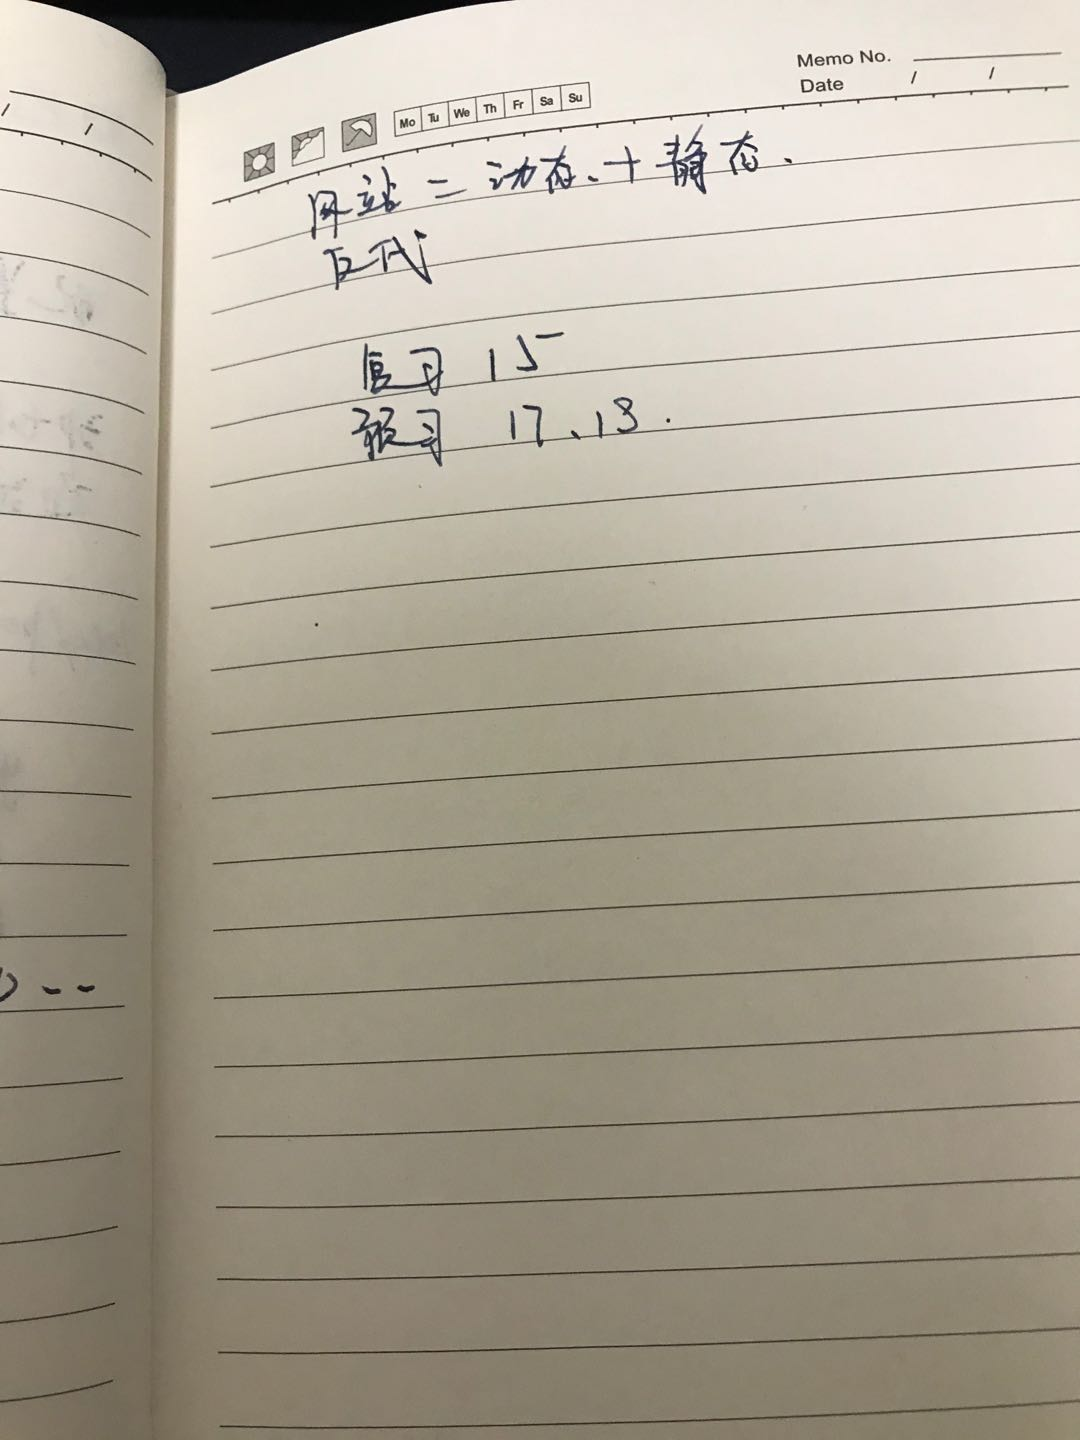 Memo No.
Date / /
Mo Tu We Th Fr Sa Su
网站 = 动态、+ 静态、
反代
复习 15
预习 17、18.